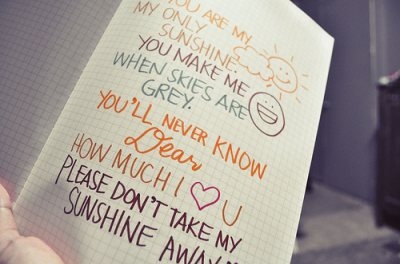 YOU ARE MY
MY ONLY
SUNSHINE
YOU MAKE ME
WHEN SKIES ARE
GREY.
YOU'LL NEVER KNOW
Dear
HOW MUCH I ♡ U
PLEASE DON'T TAKE MY
SUNSHINE AWAY